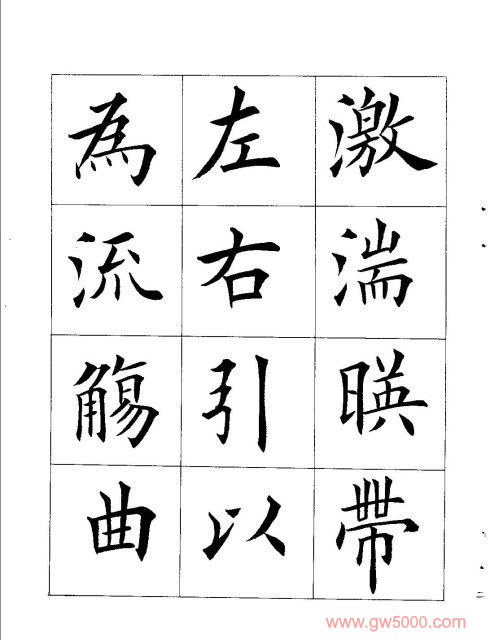 激湍暎帶
左右引以
為流觴曲
www.gw5000.com